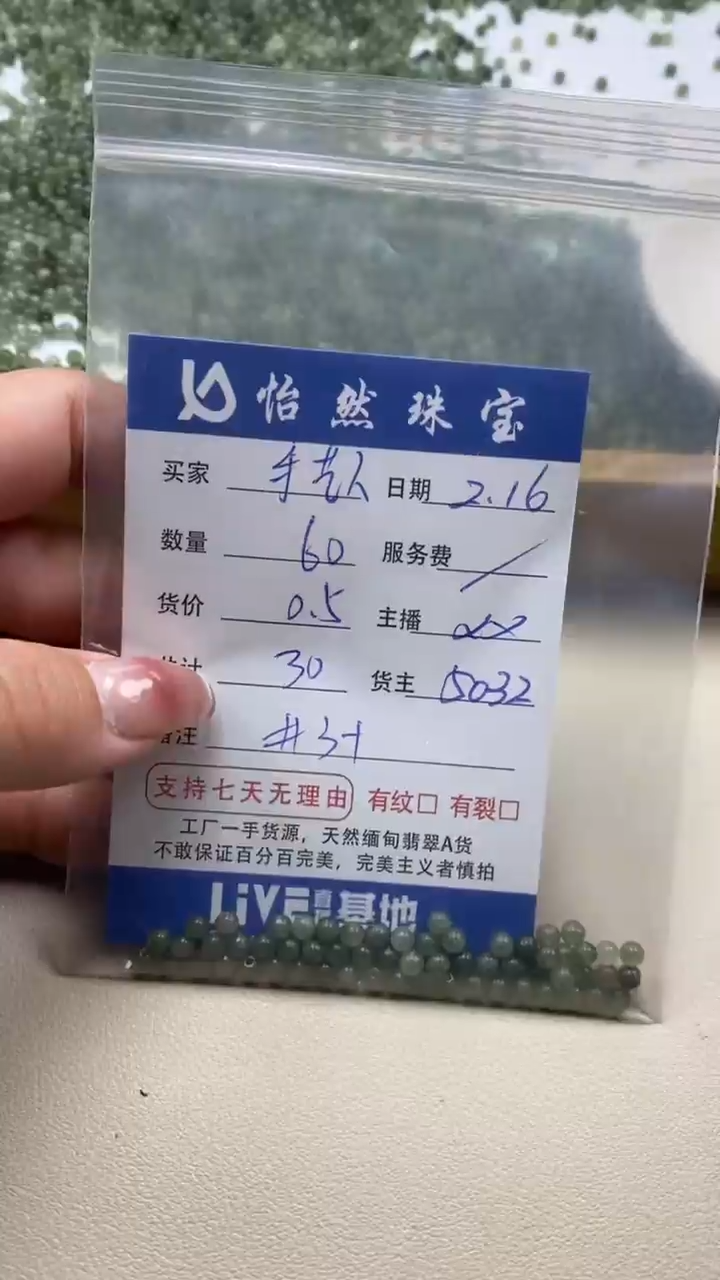 怡然珠宝
买家 手艺人 日期 2.16
数量 60 服务费 /
货价 0.5 主播
共计 30 货主 5032
备注 #3+
支持七天无理由 有纹□ 有裂□
工厂一手货源，天然缅甸翡翠A货
不敢保证百分百完美，完美主义者慎拍
LiVE直播基地